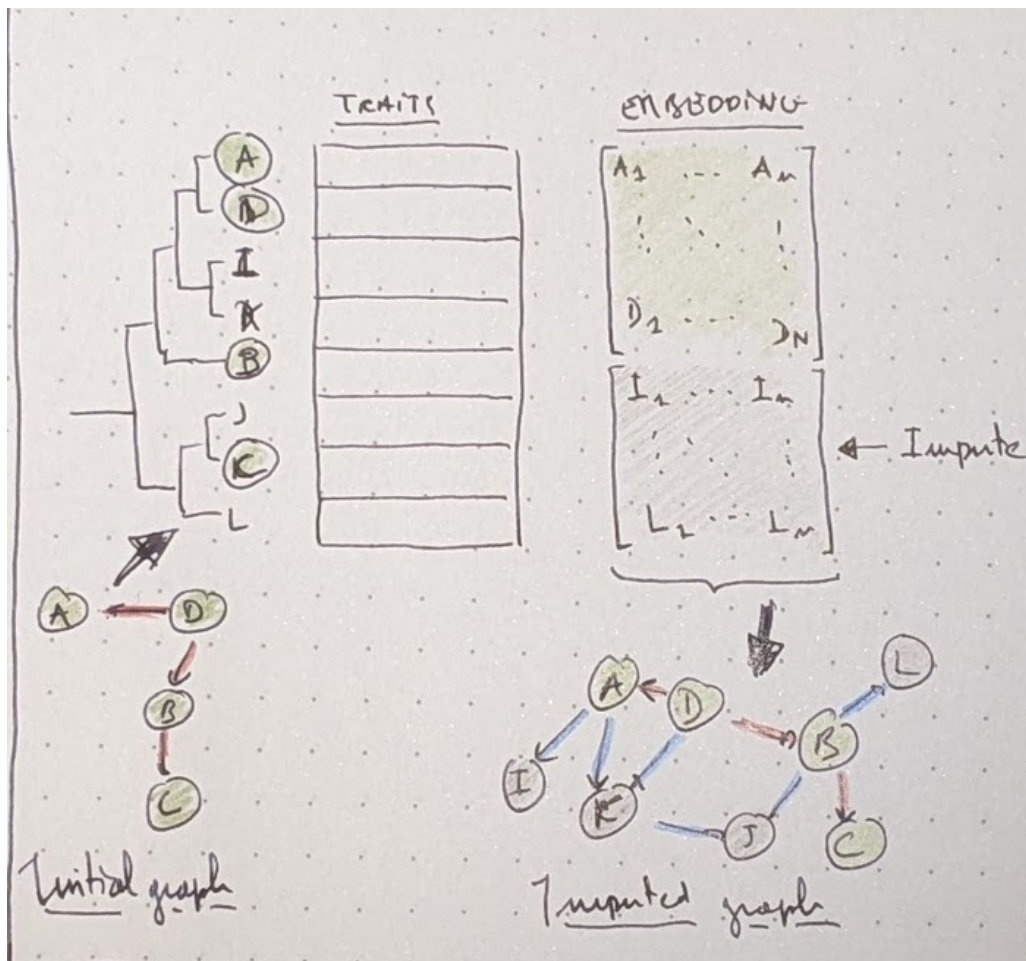 TRAITS
EMBEDDING
A
D
I
K
B
J
C
L
A1 ... An
D1 ... DN
I1 ... In
L1 ... Ln
← Impute
A
D
B
C
Initial graph
A
D
L
B
I
K
J
C
Imputed graph